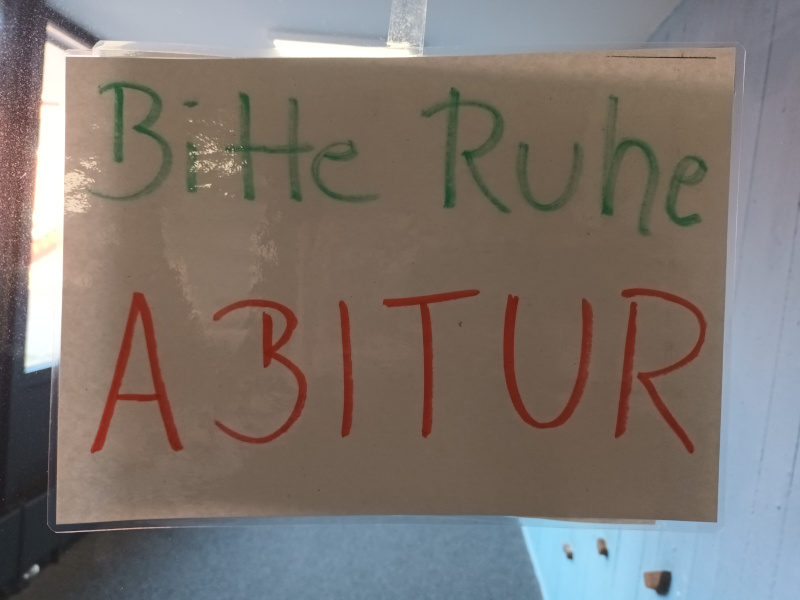 Bitte Ruhe
ABITUR